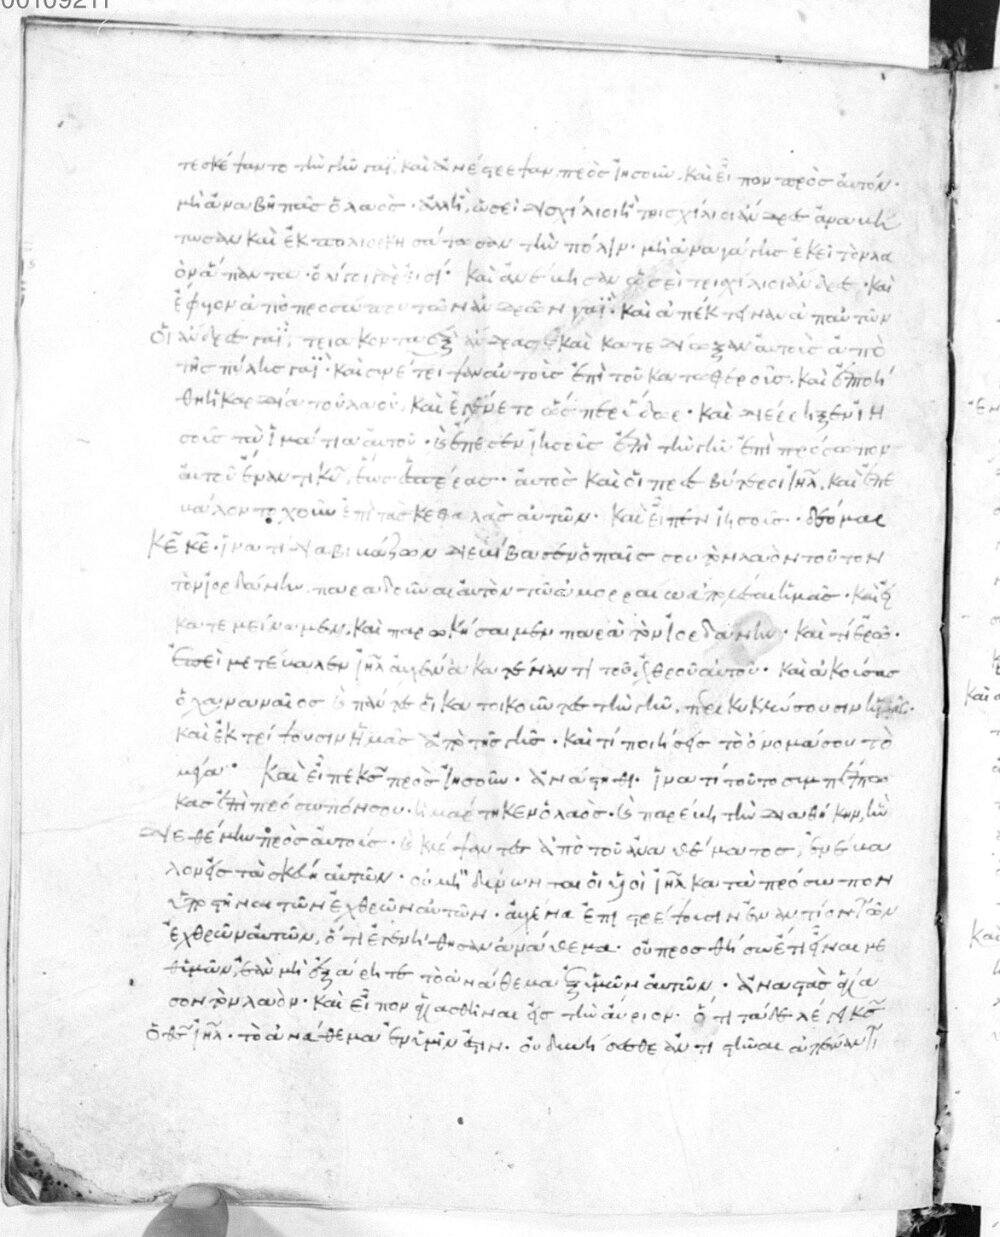 00109211
τεσκέψαντο τὴν γῆν γαΐ. καὶ ἀνέστρεψαν πρὸς ἰησοῦν. καὶ εἶπον πρὸς αὐτόν·
μὴ ἀναβῇ πᾶς ὁ λαὸς· ἀλλ' ὡσεὶ δισχίλιοι ἢ τρισχίλιοι ἄνδρες ἀναβή
τωσαν καὶ ἐκπολιορκησάτωσαν τὴν πόλιν· μὴ ἀναγάγῃς ἐκεῖ τὸν λα
ὸν ἅπαντα· ὀλίγοι γάρ εἰσι· καὶ ἀνέβησαν ὡσεὶ τρισχίλιοι ἄνδρες· καὶ
ἔφυγον ἀπὸ προσώπου τῶν ἀνδρῶν γαΐ· καὶ ἀπέκτειναν ἀπ' αὐτῶν
οἱ ἄνδρες γαΐ, τριακονταὲξ ἄνδρας· καὶ κατεδίωξαν αὐτοὺς ἀπὸ
τῆς πύλης γαΐ· καὶ συνέτριψαν αὐτοὺς ἐπὶ τοῦ καταφεροῦς. καὶ ἐπτοή
θη ἡ καρδία τοῦ λαοῦ, καὶ ἐγένετο ὥσπερ ὕδωρ· καὶ διέρρηξεν ἰη
σοῦς τὰ ἱμάτια αὐτοῦ· καὶ ἔπεσεν ἰησοῦς ἐπὶ τὴν γῆν ἐπὶ πρόσωπον
αὐτοῦ ἐναντι κυ, ἕως ἑσπέρας· αὐτὸς καὶ οἱ πρεσβύτεροι ιηλ, καὶ ἐπε
βάλοντο χοῦν ἐπὶ τὰς κεφαλὰς αὐτῶν· καὶ εἶπεν ἰησοῦς· δέομαι
κε κε· ἵνα τί διαβιβάζων διεβίβασεν ὁ παῖς σου τὸν λαὸν τοῦτον
τὸν ἰορδάνην παραδοῦναι αὐτὸν τῶ ἀμορραίω ἀπολέσαι ἡμᾶς· καὶ εἰ
κατεμείναμεν, καὶ παρωκήσαμεν παρὰ τὸν ἰορδάνην· καὶ τί ἐρῶ·
ἐπεὶ μετέβαλεν ιηλ αὐχένα κατέναντι τοῦ ἐχθροῦ αὐτοῦ· καὶ ἀκούσας
ὁ χαναναῖος καὶ πάντες οἱ κατοικοῦντες τὴν γῆν, περικυκλώσουσιν ἡμᾶς·
καὶ ἐκτρίψουσιν ἡμᾶς ἀπὸ τῆς γῆς· καὶ τί ποιήσεις τὸ ὄνομά σου τὸ
μέγα· καὶ εἶπε κς πρὸς ἰησοῦν· ἀνάστηθι· ἵνα τί τοῦτο σὺ πέπτω
κας ἐπὶ πρόσωπόν σου· ἡμάρτηκεν ὁ λαὸς· καὶ παρέβη τὴν διαθήκην, ἣν
διεθέμην πρὸς αὐτοὺς· καὶ κλέψαντες ἀπὸ τοῦ ἀναθέματος, ἐνέβα
λον εἰς τὰ σκεύη αὐτῶν· οὐ μὴ δύνωνται οἱ υἱοὶ ιηλ κατὰ πρόσωπον
ὑποστῆναι τῶν ἐχθρῶν αὐτῶν· αὐχένα ἐπιστρέψουσιν ἐναντίον τῶν
ἐχθρῶν αὐτῶν, ὅτι ἐγενήθησαν ἀνάθεμα· οὐ προσθήσω ἔτι εἶναι με
θ' ὑμῶν, ἐὰν μὴ ἐξάρητε τὸ ἀνάθεμα ἐξ ὑμῶν αὐτῶν· ἀναστὰς ἁγία
σον τὸν λαὸν· καὶ εἶπον ἁγιασθῆναι εἰς τὴν αὔριον· ὅτι τάδε λέγει κς
ὁ θς ιηλ· τὸ ἀνάθεμα ἐν ὑμῖν ἐστιν· οὐ δυνήσεσθε ἀντιστῆναι ἀπέναντι